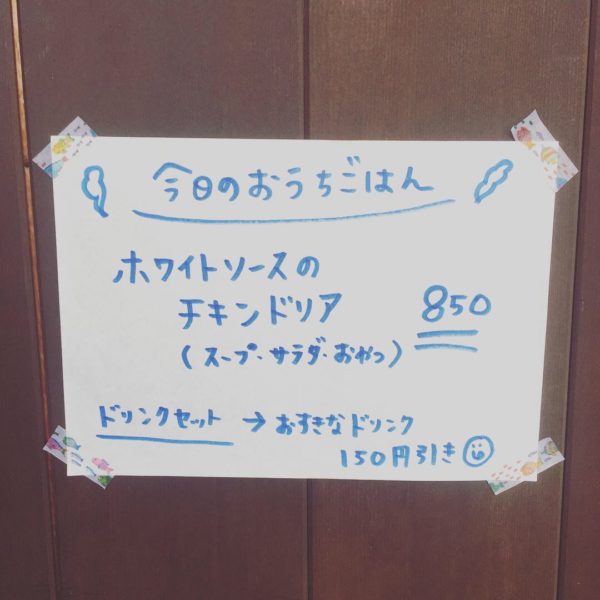 今日のおうちごはん
ホワイトソースの
チキンドリア 850
(スープ・サラダ・おやつ)
ドリンクセット → おすきなドリンク
150円引き